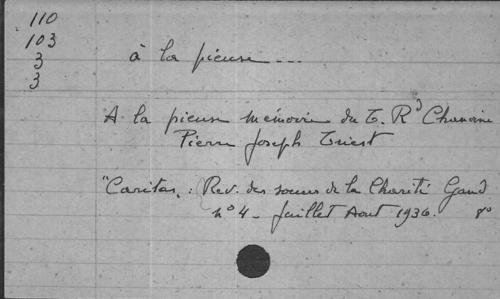 110
103
3
3
à la pieuse ...
A la pieuse mémoire du T. Rd Chanoine
Pierre Joseph Triest
"Caritas, : Rev. des soeurs de la Charité Gand
no 4 - Juillet Aout 1936. 8o